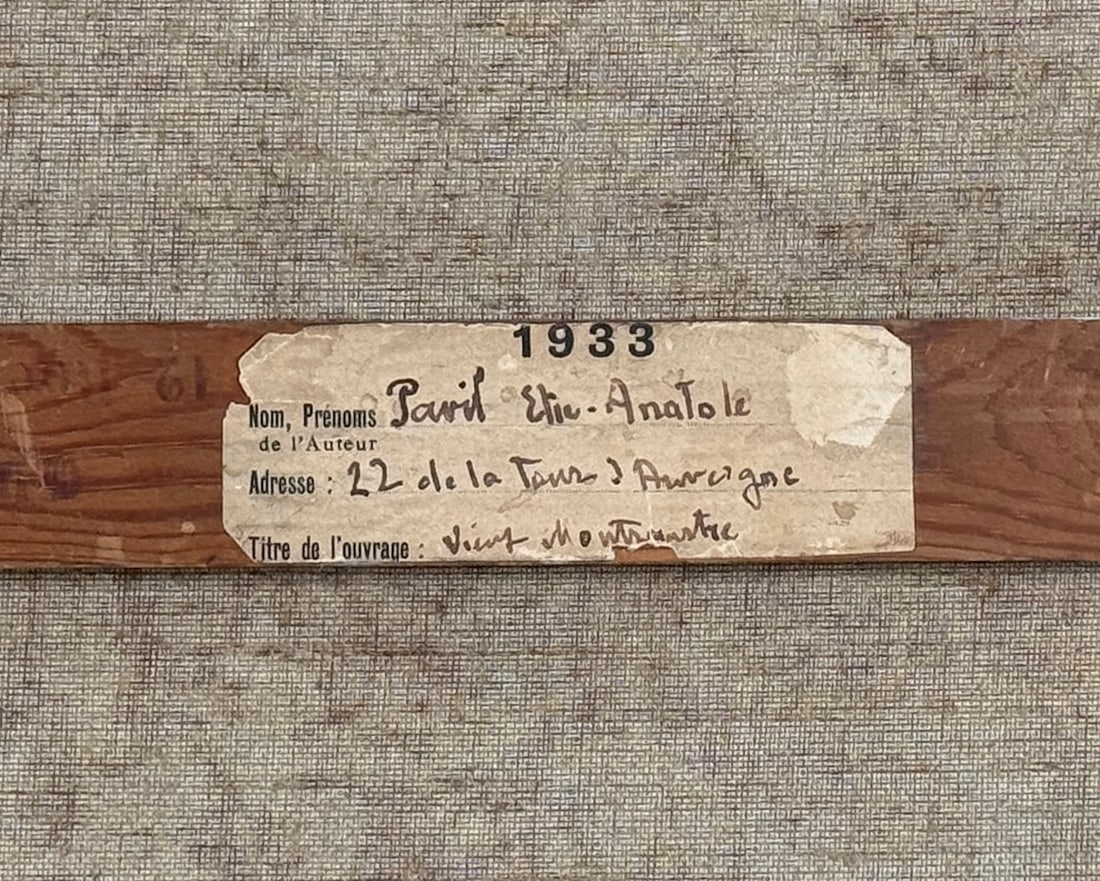 1933
Nom, Prénoms Pavil Elie-Anatole
de l'Auteur
Adresse : 22 de la Tour d'Auvergne
Titre de l'ouvrage : Vieux Montmartre